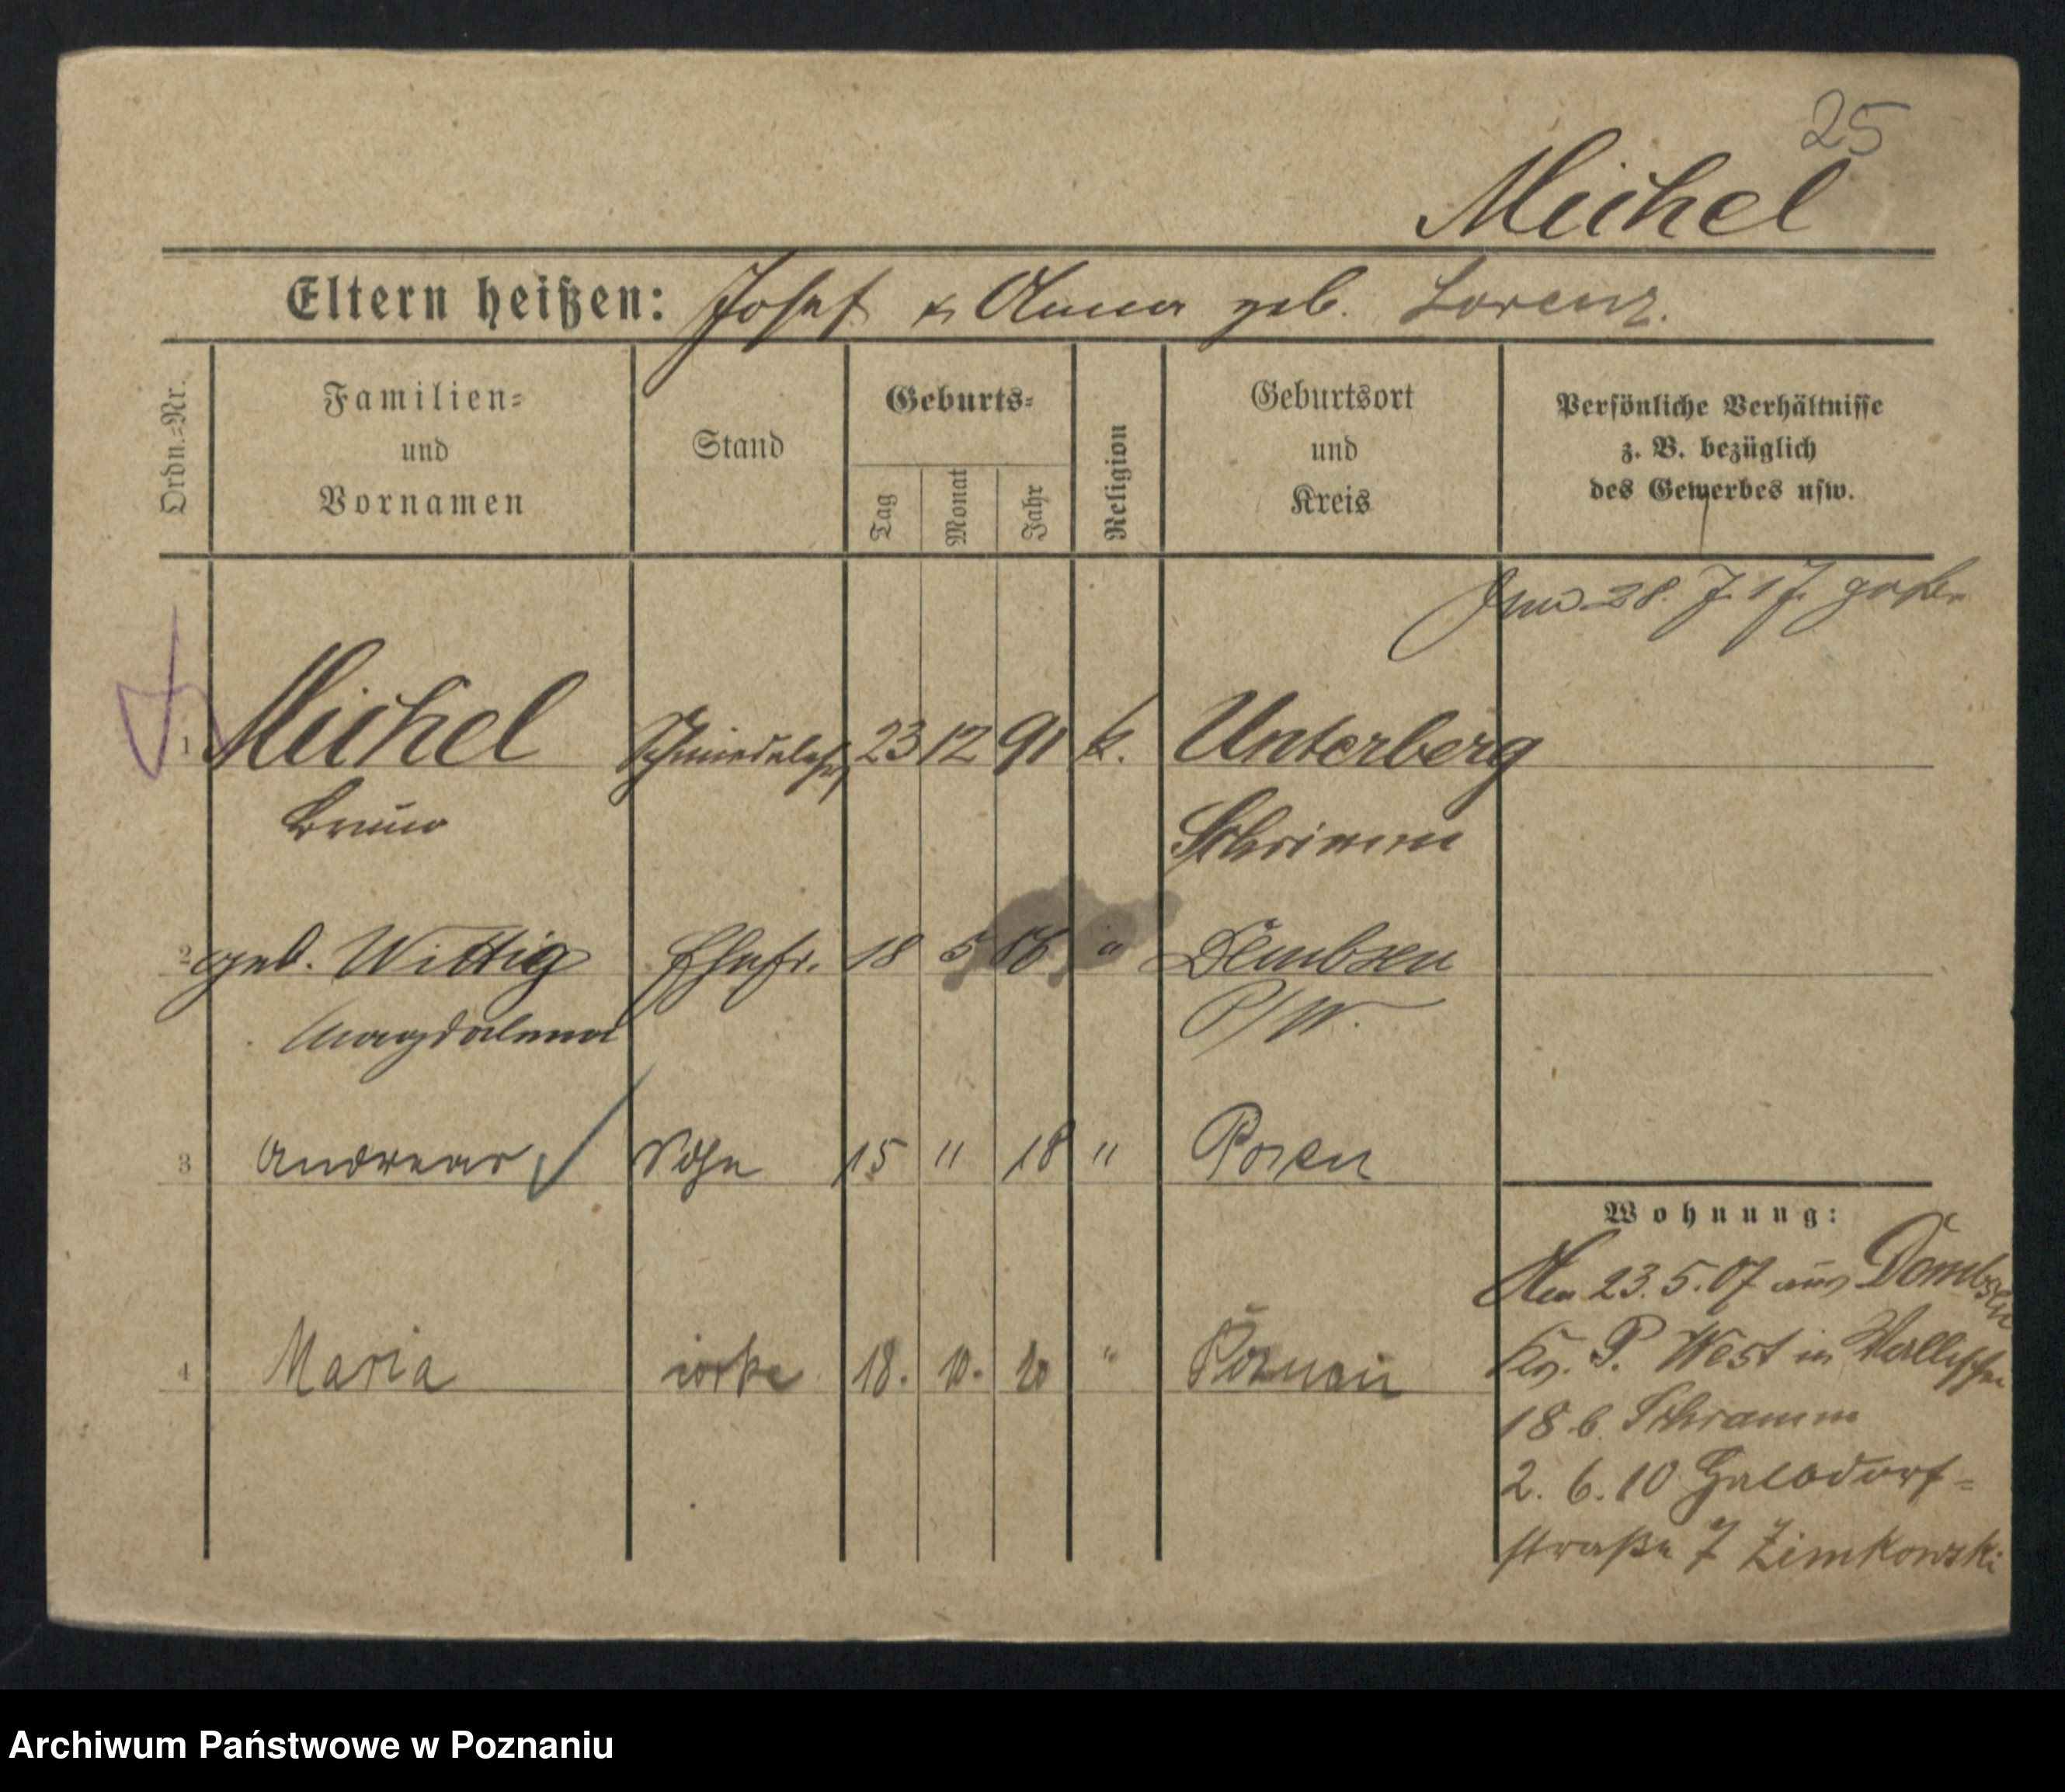 25
Michel
Eltern heißen: Josef u Anna geb. Lorenz.
Ordn.=Nr.
Familien=
und
Vornamen
Stand
Geburts=
Tag
Monat
Jahr
Religion
Geburtsort
und
Kreis
Persönliche Verhältnisse
z. B. bezüglich
des Gewerbes usw.
28. 7. 17.
1 Michel 23 12 91 k. Unterberg
Bruno Schrimm
2 geb. Wittig Ehefr. 18 5 " Dembsen
Magdalena P/W.
3 Andreas Sohn 15 " 18 " Posen
4 Maria córka 18. 10. 20 " Poznań
Wohnung:
Am 23.5.07 aus Dembsen
Kr. P. West in Wallischei
18 b. Schramm
2. 6. 10
straße 7 Zimkowski
Archiwum Państwowe w Poznaniu